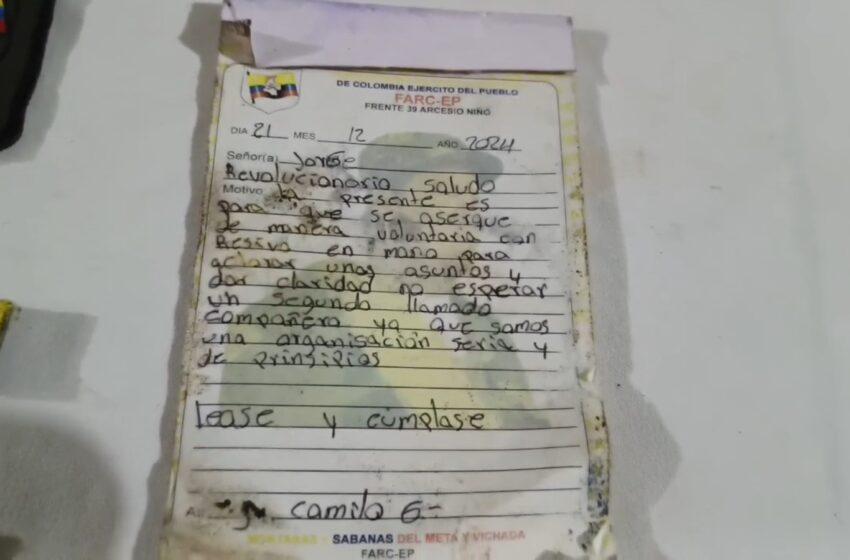 DE COLOMBIA EJERCITO DEL PUEBLO
FARC-EP
FRENTE 39 ARCESIO NIÑO
DIA 21 MES 12 AÑO 2024
Señor(a) Jorge
Revolucionario saludo
Motivo la presente es
para que se aserque
de manera voluntaria con
Resivo en mano para
aclarar unos asuntos y
dar claridad no esperar
un segundo llamado
compañero ya que somos
una organisación seria y
de prinsipios
lease y cumplase
camilo G-
MONTAÑAS - SABANAS DEL META Y VICHADA
FARC-EP